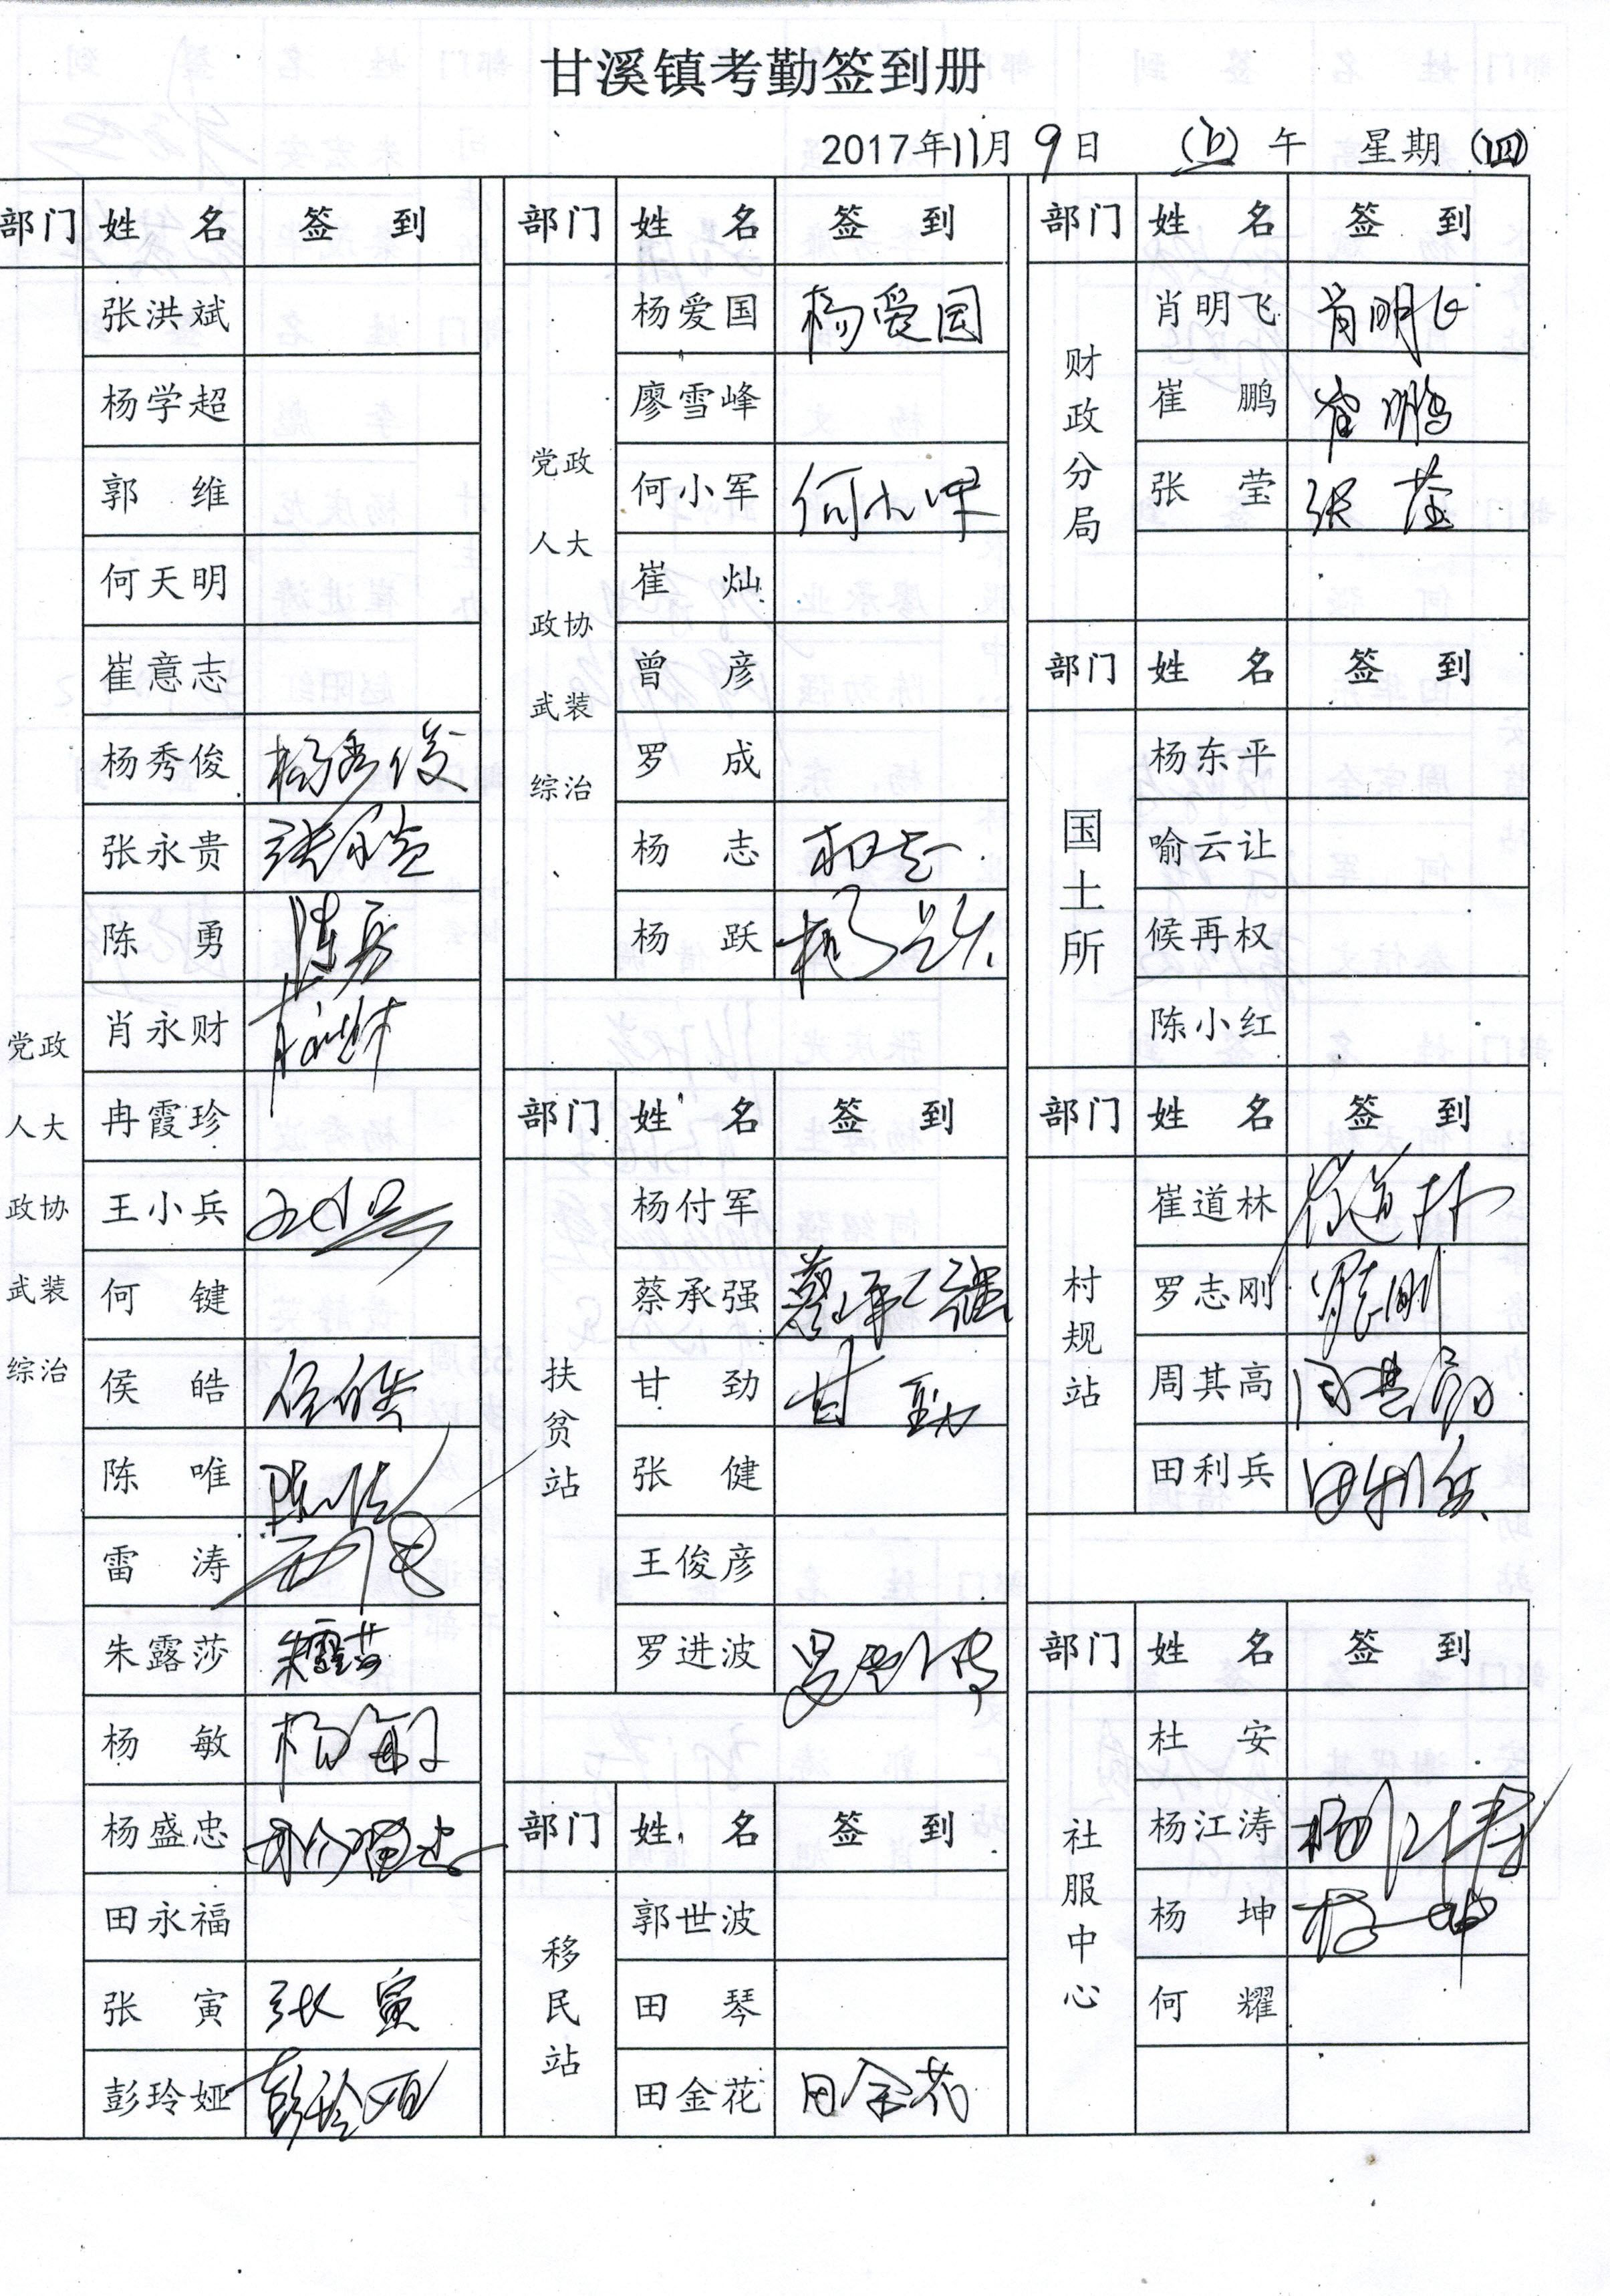 甘溪镇考勤签到册
2017年11月9日 午 星期(四)
部门 姓名 签到
党政 人大 政协 武装 综治
张洪斌
杨学超
郭维
何天明
崔意志
杨秀俊 杨秀俊
张永贵 张永贵
陈勇 陈勇
肖永财 肖永财
冉霞珍
王小兵 王小兵
何键
侯皓 侯皓
陈唯 陈唯
雷涛
朱露莎 朱露莎
杨敏 杨敏
杨盛忠 杨盛忠
田永福
张寅 张寅
彭玲娅 彭玲娅
部门 姓名 签到
党政 人大 政协 武装 综治
杨爱国 杨爱国
廖雪峰
何小军 何小军
崔灿
曾彦
罗成
杨志 杨志
杨跃 杨跃
部门 姓名 签到
扶贫站
杨付军
蔡承强 蔡承强
甘劲 甘劲
张健
王俊彦
罗进波 罗进波
部门 姓名 签到
移民站
郭世波
田琴
田金花 田金花
部门 姓名 签到
财政分局
肖明飞 肖明飞
崔鹏 崔鹏
张莹 张莹
部门 姓名 签到
国土所
杨东平
喻云让
候再权
陈小红
部门 姓名 签到
村规站
崔道林 崔道林
罗志刚 罗志刚
周其高 周其高
田利兵 田利兵
部门 姓名 签到
社服中心
杜安
杨江涛 杨江涛
杨坤 杨坤
何耀